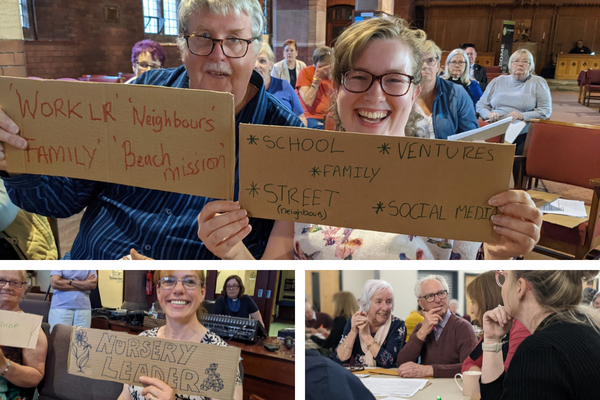 'WORK LR' 'Neighbours'
'FAMILY' 'Beach mission'
*SCHOOL *VENTURES
*FAMILY
*STREET
(neighbours) *SOCIAL MEDIA
NURSERY
LEADER